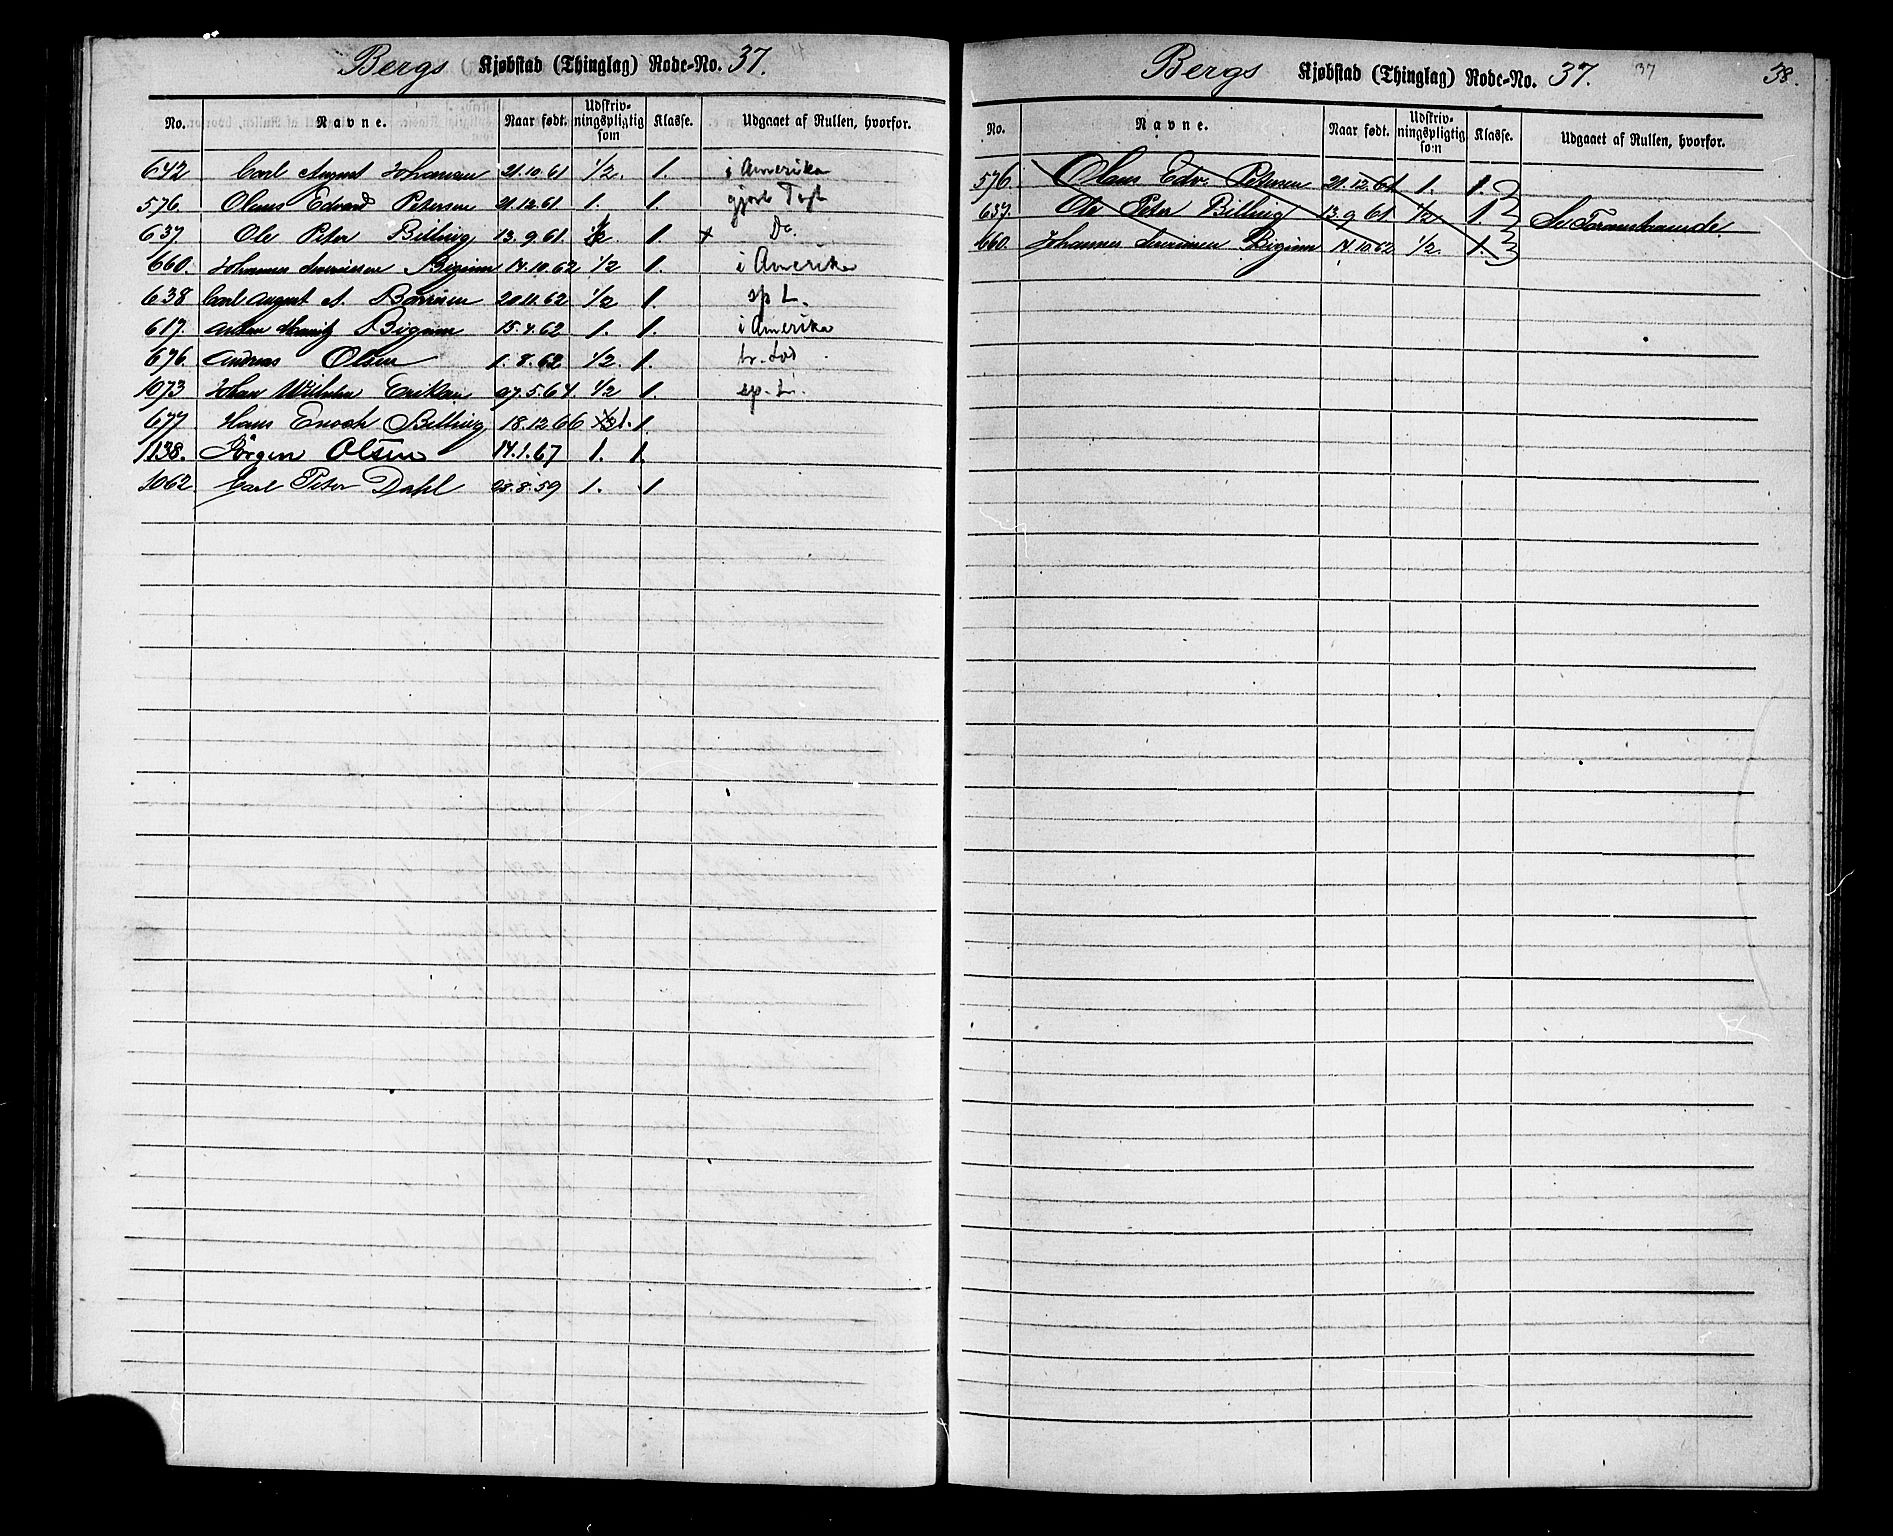 Bergs Kjøbstad (Thinglag) Rode-No. 37.
No. Navne. Naar født. Udskrivningspligtig som Klasse. Udgaaet af Rullen, hvorfor.
642 Carl August Johansen 21.10.61 1/2. 1. i Amerika
576. Olaus Edvard Petersen 21.12.61 1. 1. gjort Togt
637 Ole Peter Billing 13.9.61. 1. + Do.
660. Johannes Bigum 14.10.62 1/2 1. i Amerika
638 Carl August A. 20.11.62 1/2 1. sp L.
617. Anton Bigum 15.4.62 1. 1. i Amerika
676. Andreas Olsen 1.8.62 1/2. 1.
1073 Johan Wilhelm Eriksen 27.5.64. 1/2 1. sp. L.
677 Hans Enoch Billing 18.12.66 1. 1
1138. Jörgen Olsen 14.1.67 1. 1.
1062. Carl Peter Dahl 28.8.59 1. 1
Bergs Kjøbstad (Thinglag) Rode-No. 37. 37 38.
No. Navne. Naar født. Udskrivningspligtig som Klasse. Udgaaet af Rullen, hvorfor.
576. Olaus Edv. Petersen 21.12.61 1. 1.
637. Ole Peter Billing 13.9.61 1/2 1. Se Foranstaaende
660. Johannes Bigum 14.10.62 1/2. 1.